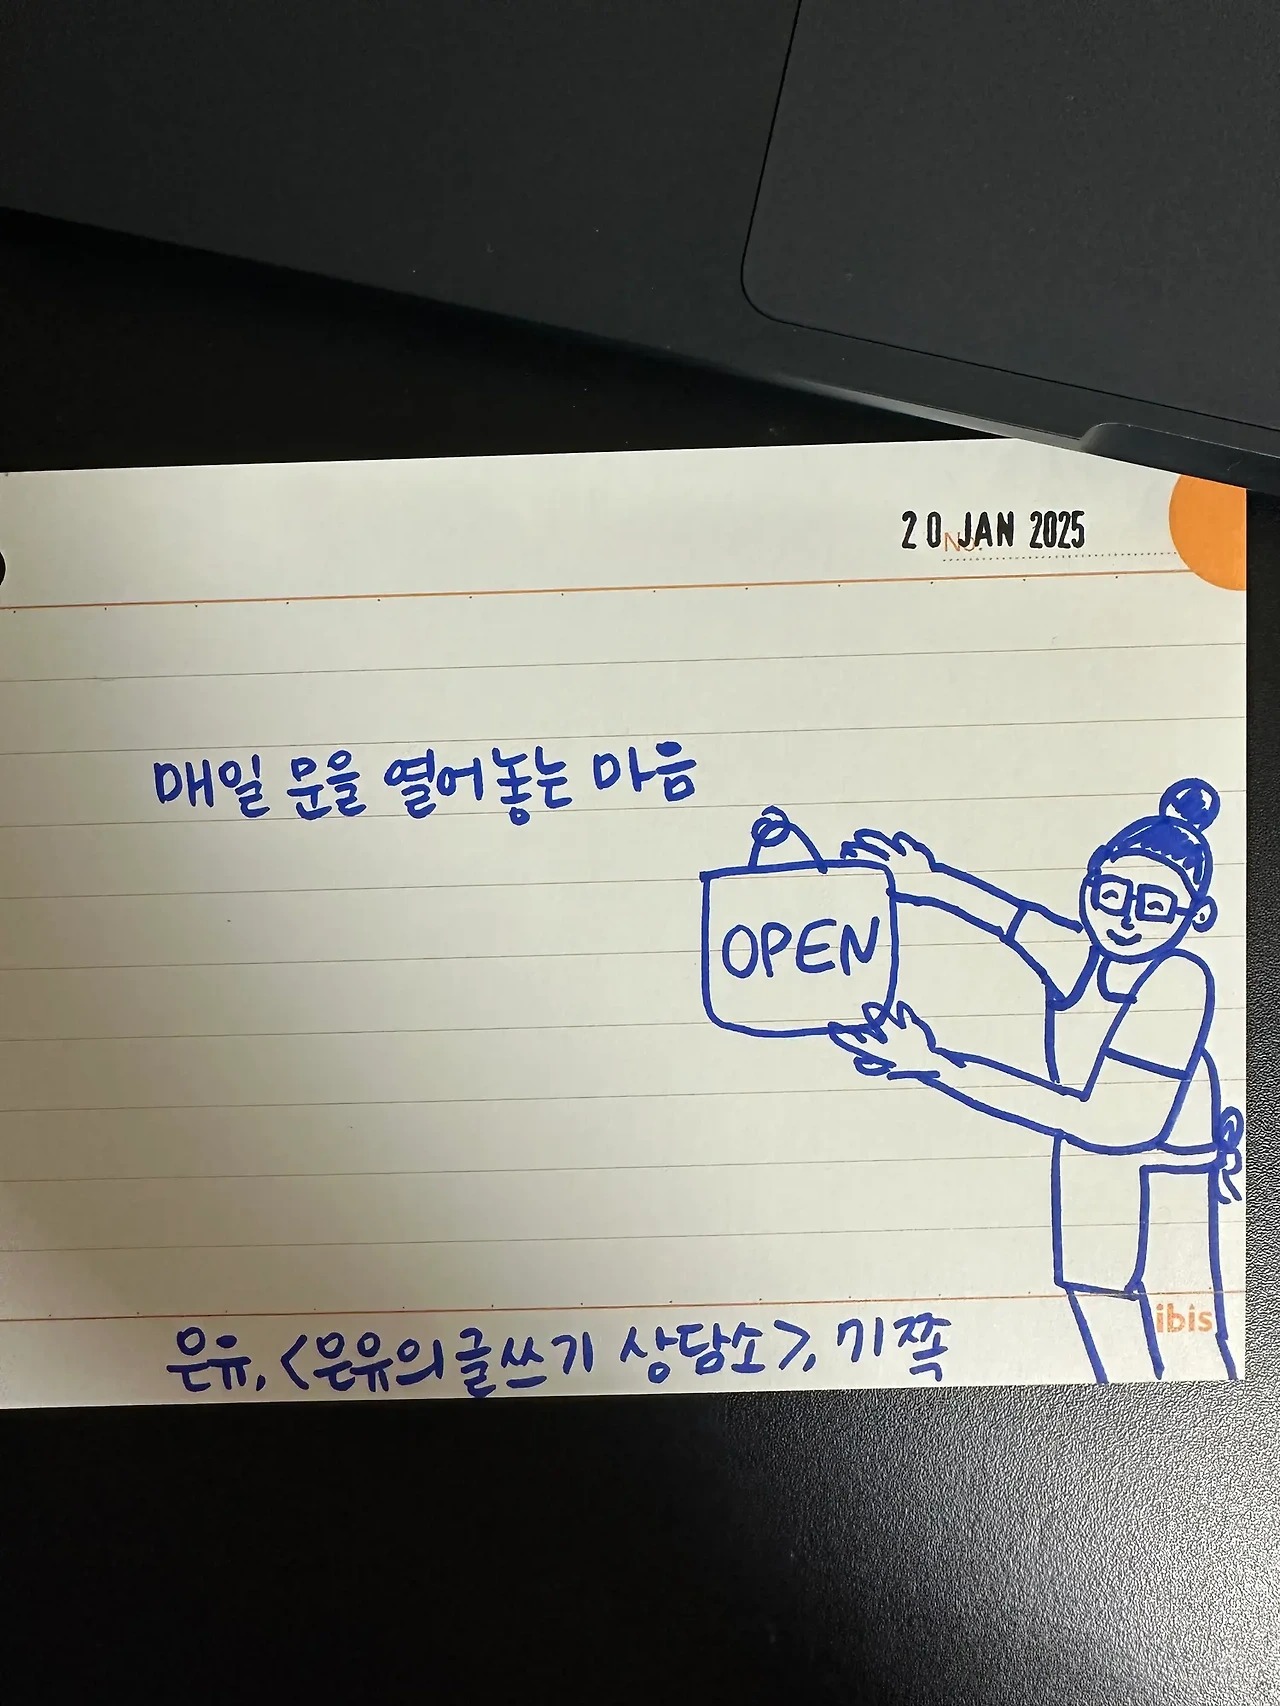 20 JAN 2025
No.
매일 문을 열어놓는 마음
OPEN
ibis
은유, <은유의 글쓰기 상담소>, 71쪽